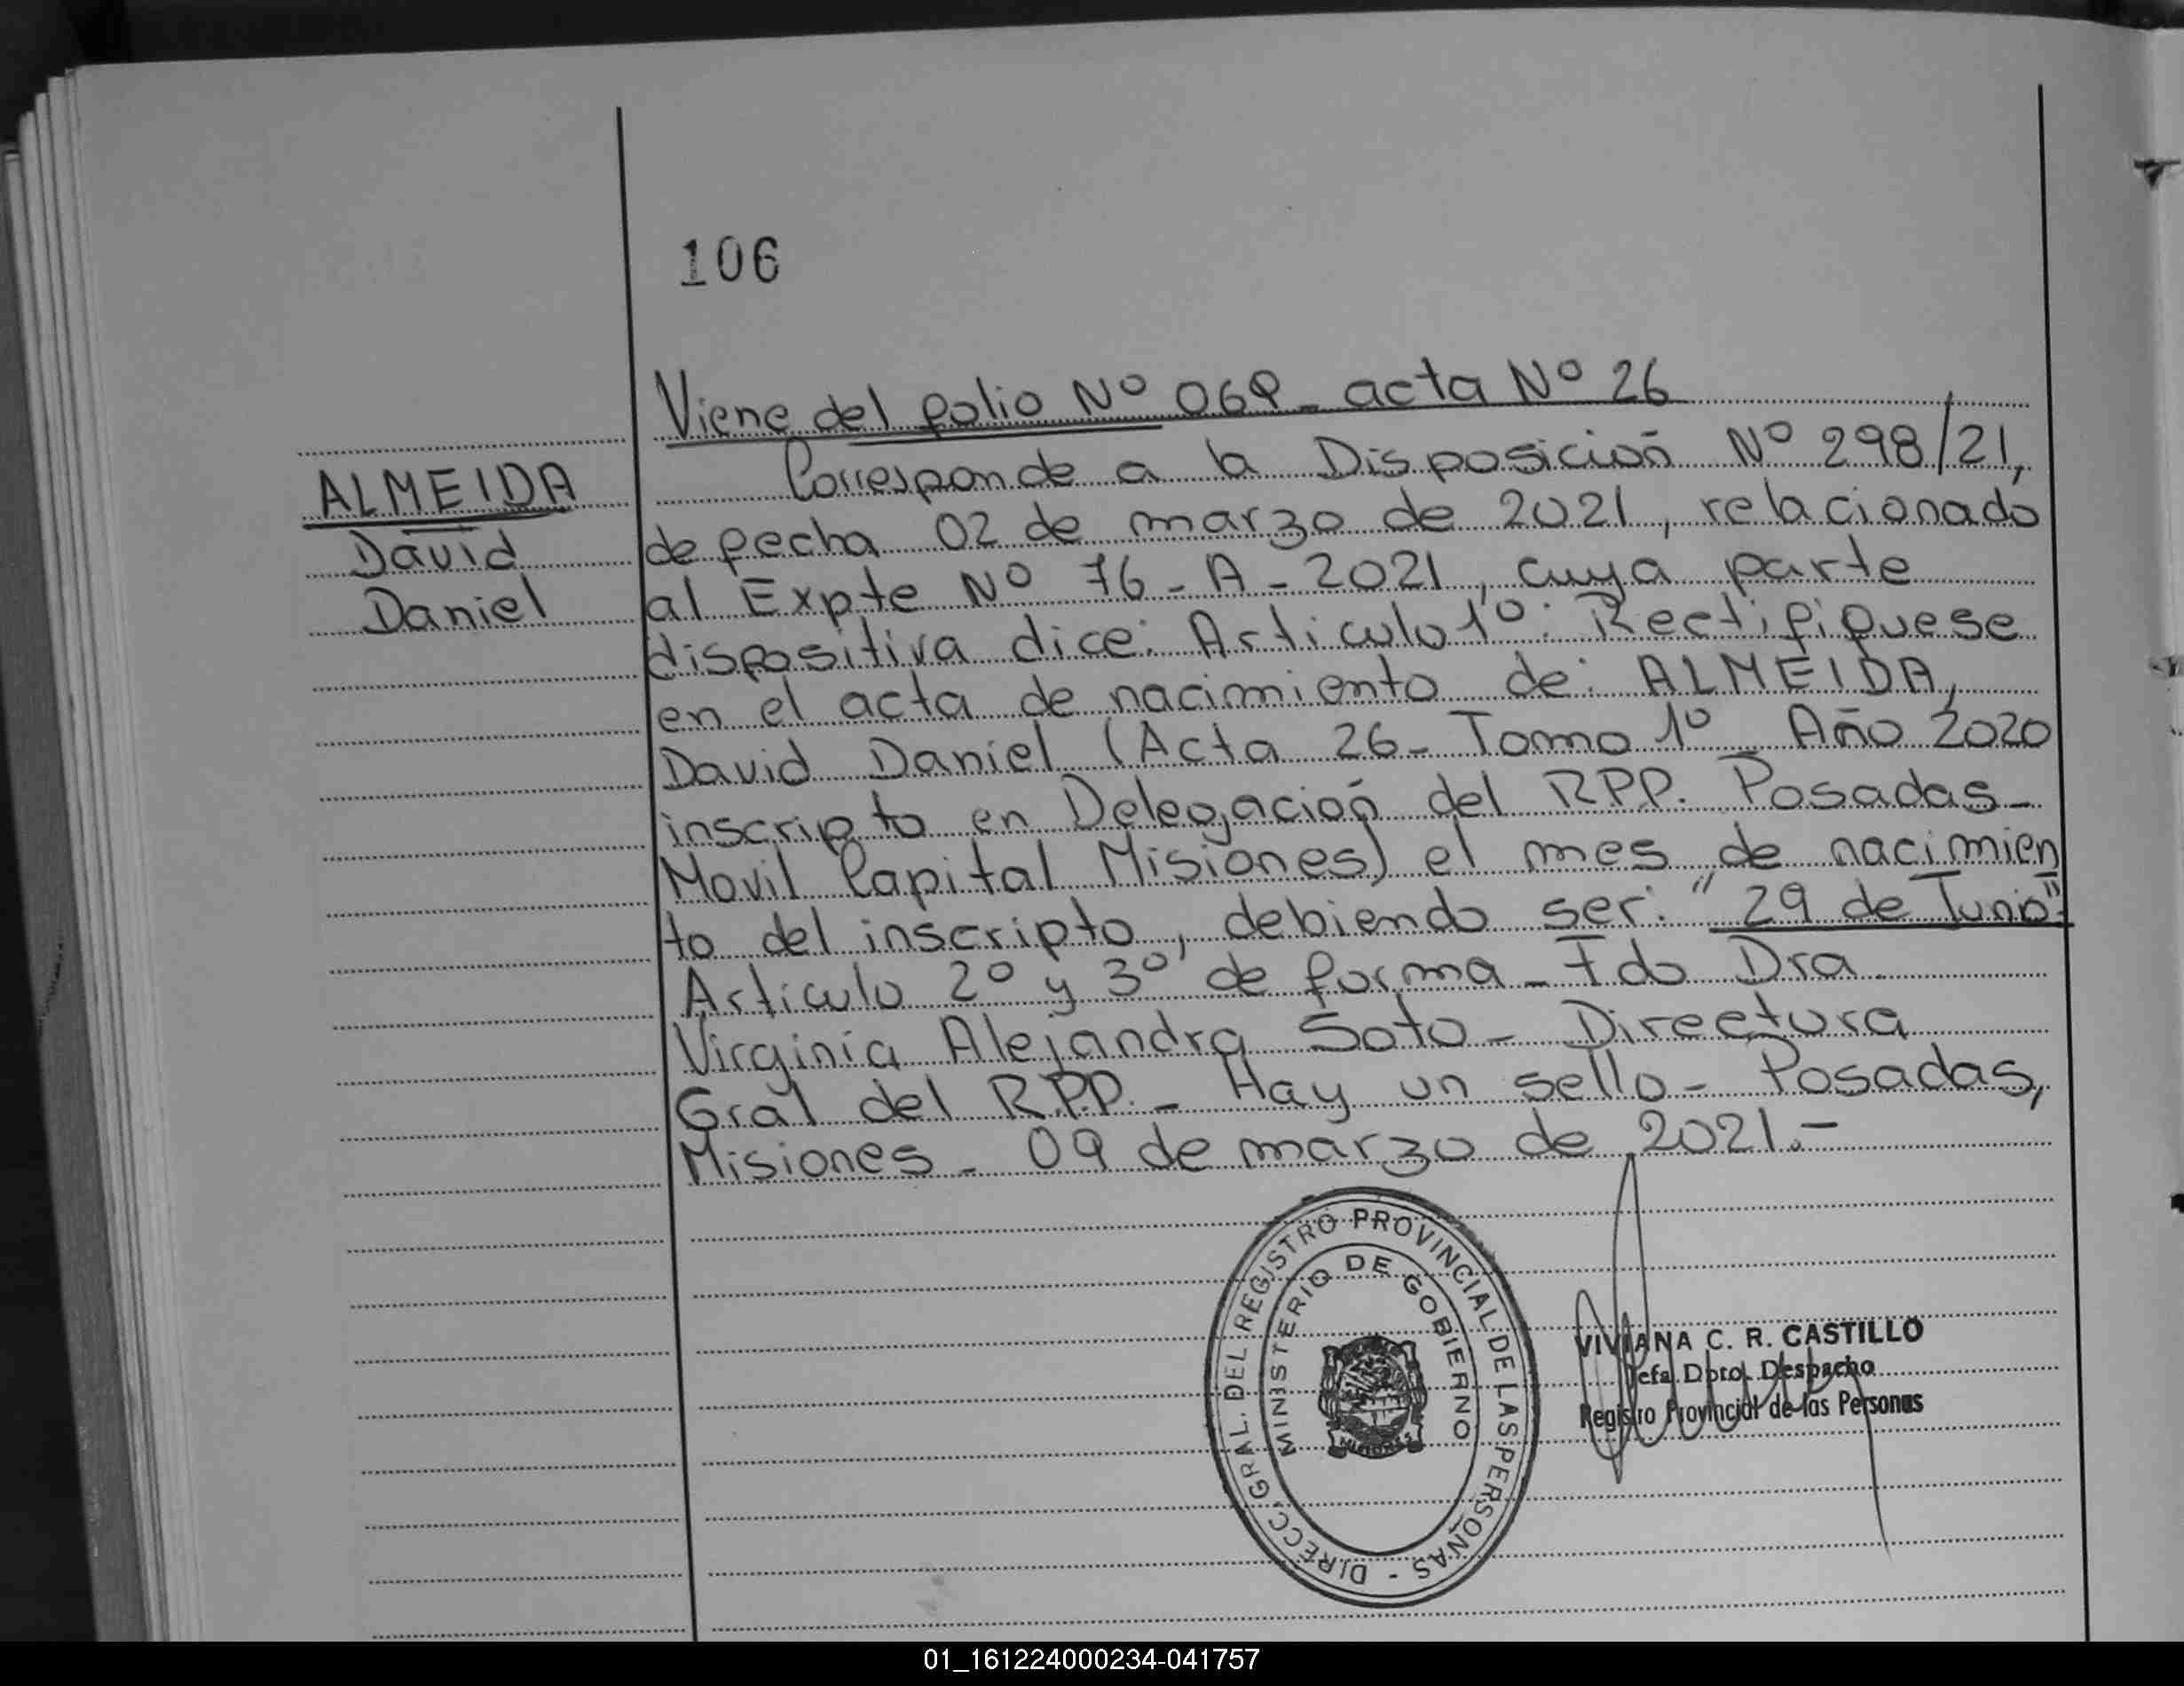 106
Viene del folio Nº 069_ acta Nº 26
ALMEIDA
David
Daniel
Corresponde a la Disposición Nº 298/21,
de fecha 02 de marzo de 2021, relacionado
al Expte Nº 76_A_2021, cuya parte
dispositiva dice: Articulo 1º: Rectifiquese
en el acta de nacimiento de: ALMEIDA,
David Daniel (Acta 26_ Tomo 1º_ Año 2020
inscripto en Delegación del RPP. Posadas_
Movil Capital Misiones) el mes de nacimien
to del inscripto, debiendo ser: "29 de Junio".
Articulo 2º y 3º de forma_ Fdo Dra
Virginia Alejandra Soto_ Directora
Gral del R.P.P._ Hay un sello_ Posadas,
Misiones_ 09 de marzo de 2021.-
DIRECC. GRAL. DEL REGISTRO PROVINCIAL DE LAS PERSONAS -
MINISTERIO DE GOBIERNO
MISIONES
VIVIANA C. R. CASTILLO
Jefa Dpto. Despacho
Registro Provincial de las Personas
01_161224000234-041757